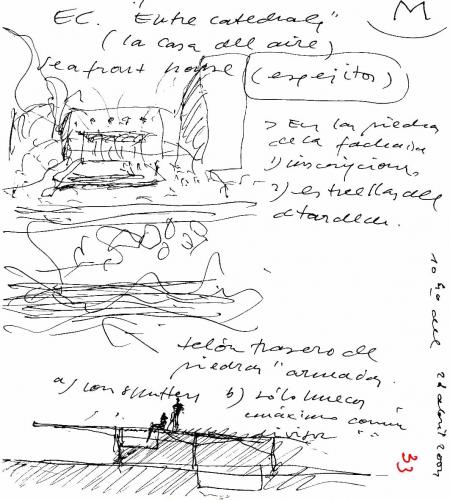 EC. "Entre catedrales"
M
(la casa del aire)
seafront house (espejitos)
> En las piedras
de la fachada
1) inscripciones
2) estrellas del
atardecer.
telón trasero de
piedras "armadas.
a) con shutters b) sólo huecos
"máximo común
divisor"
abril 2004
33